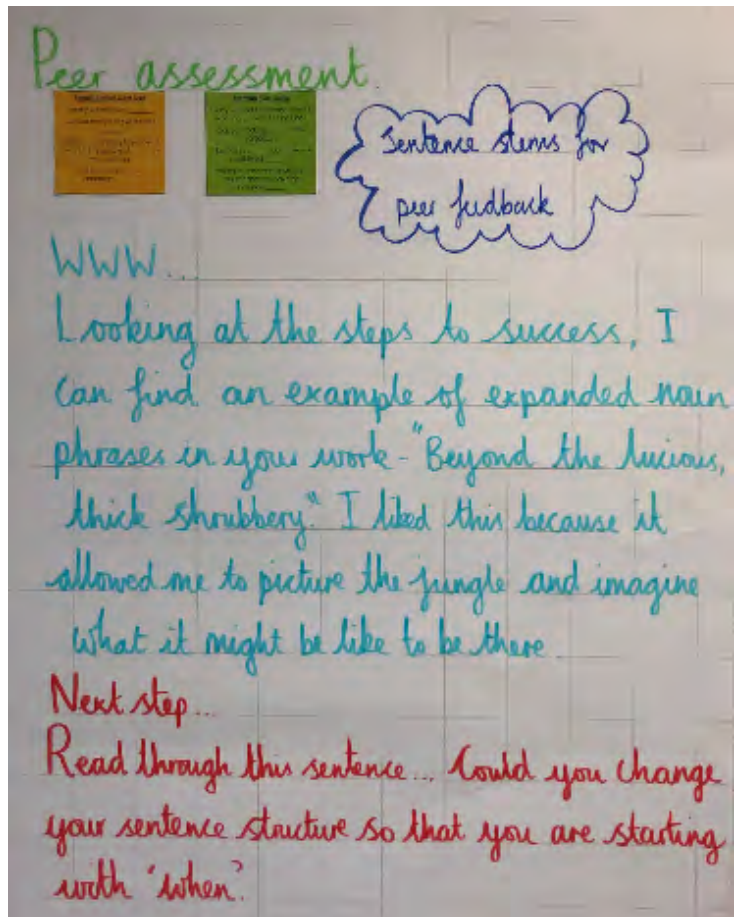 Peer assessment
Sentence stems for
peer feedback
WWW...
Looking at the steps to success, I
can find an example of expanded noun
phrases in your work - "Beyond the lucious,
thick shrubbery." I liked this because it
allowed me to picture the jungle and imagine
what it might be like to be there
Next step...
Read through this sentence... Could you change
your sentence structure so that you are starting
with 'when'?